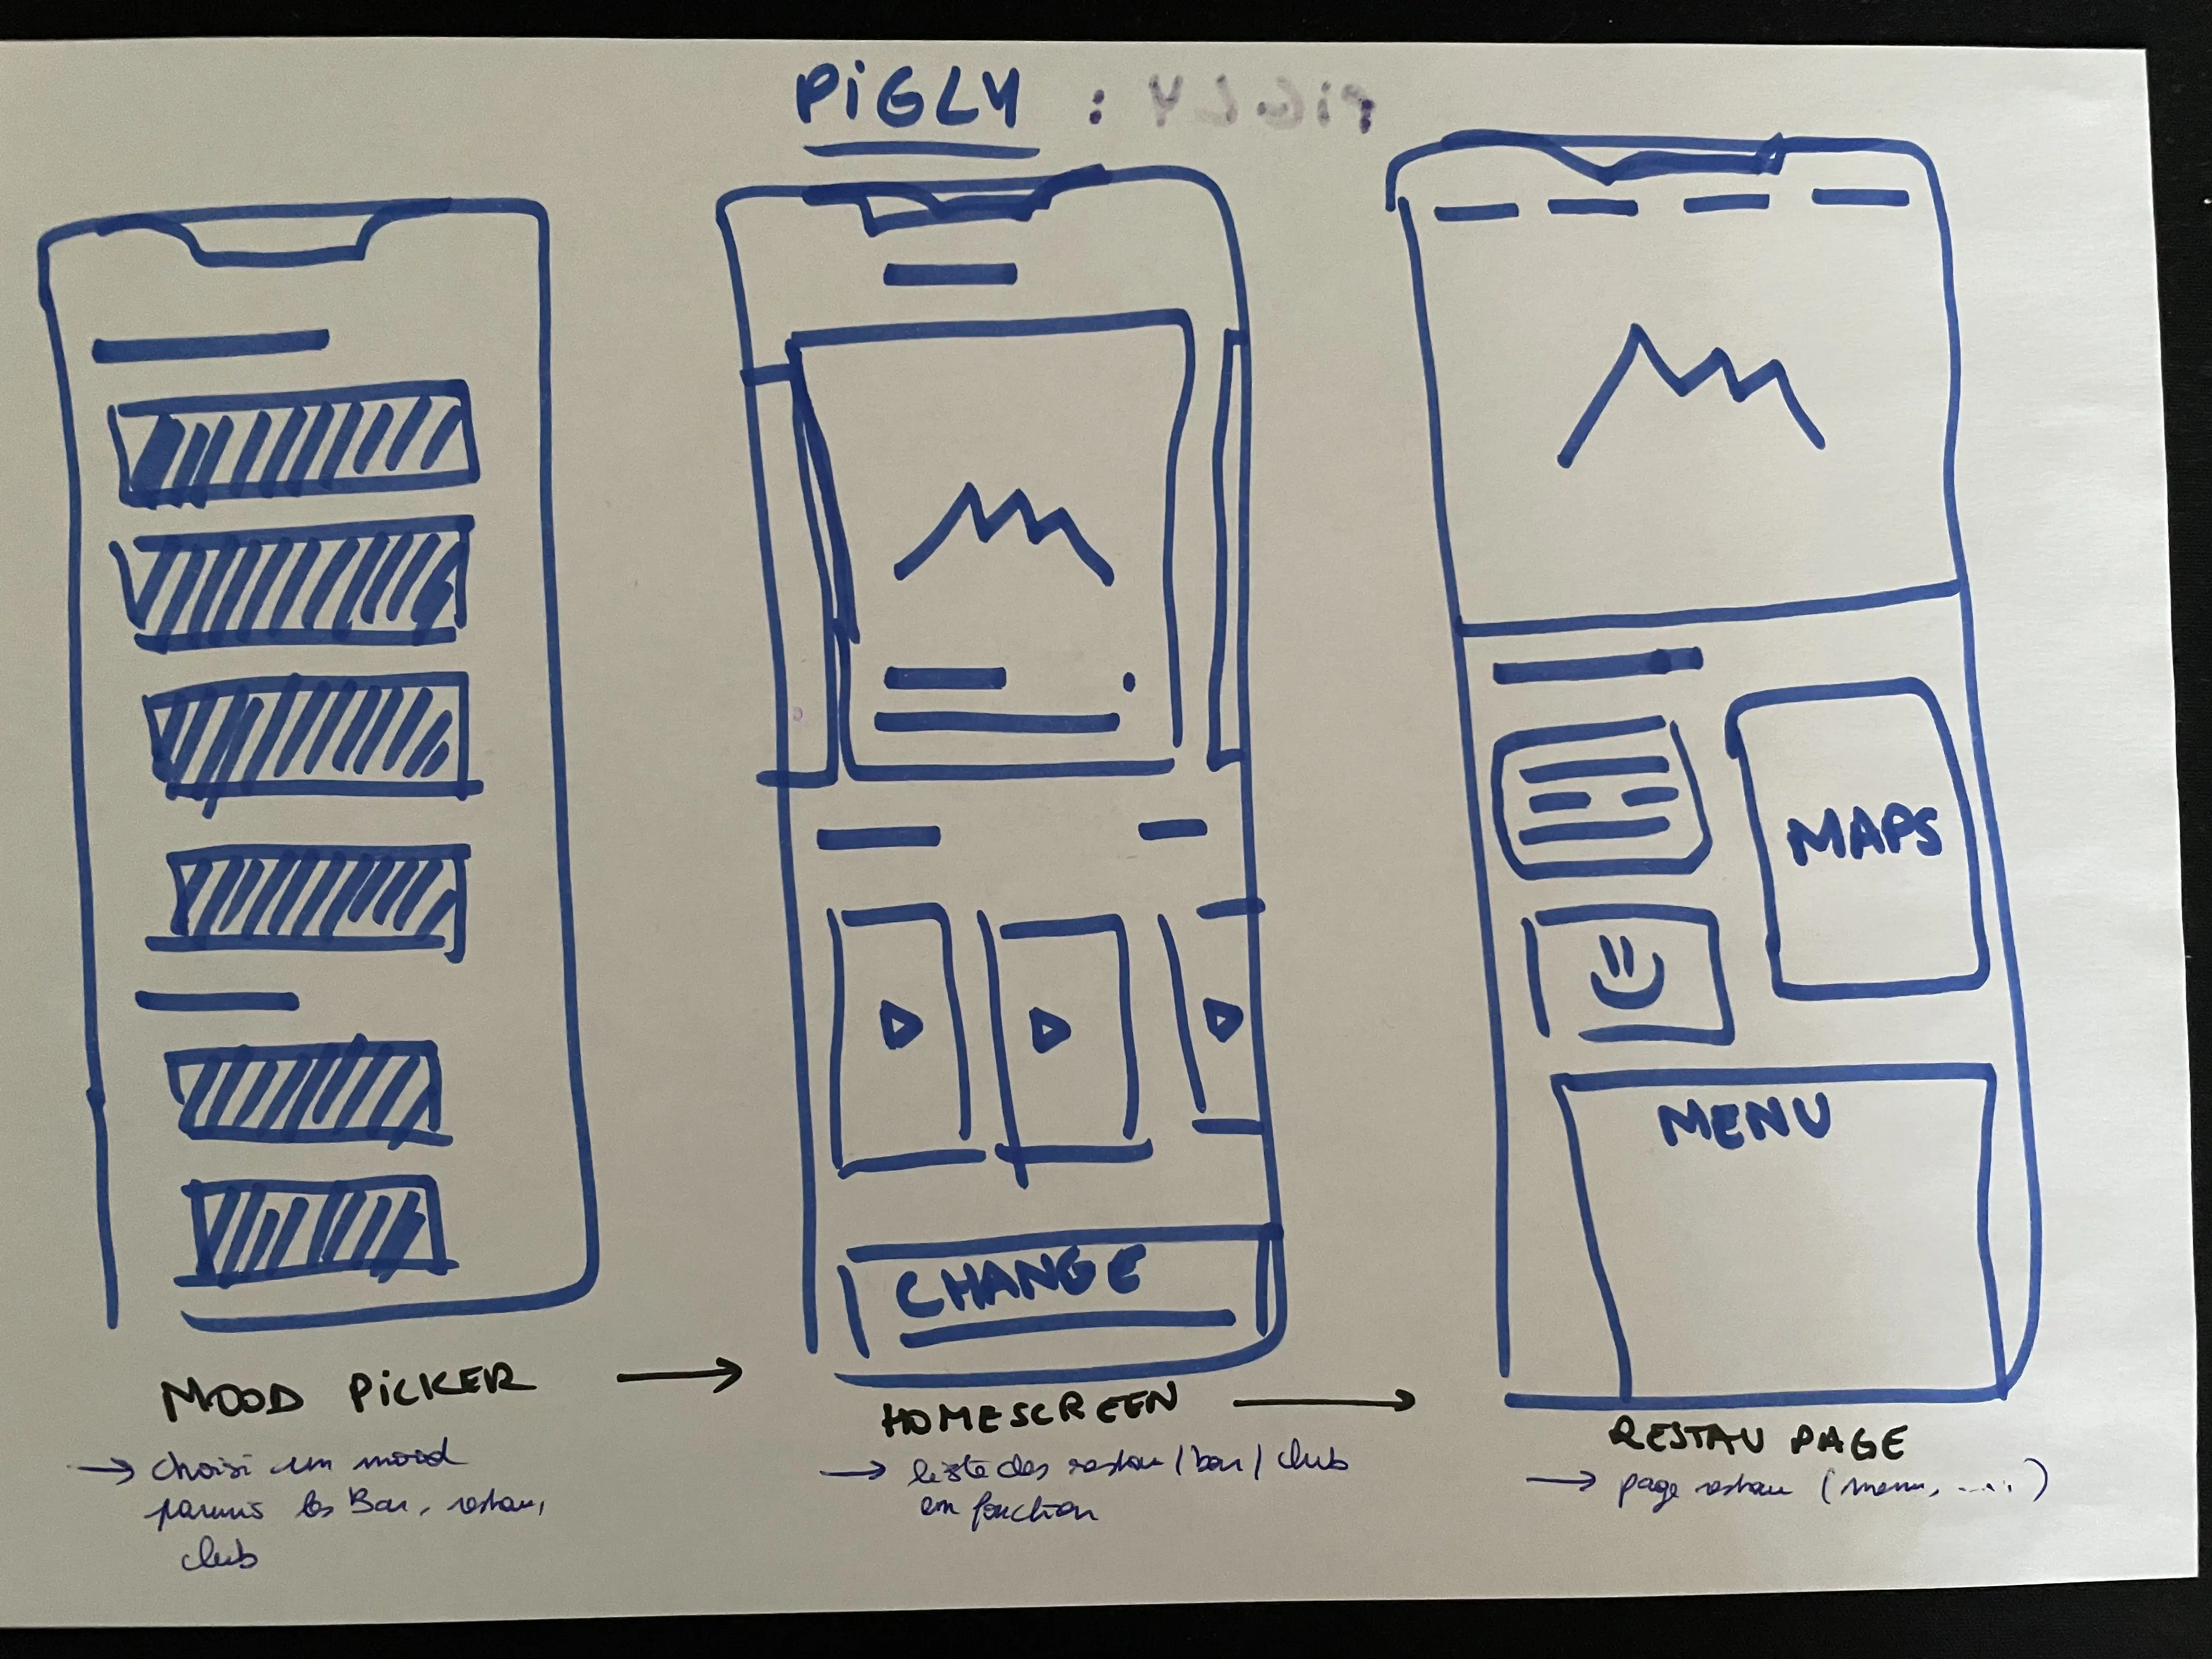 PiGLY : PiGLY
MAPS
MENU
CHANGE
MOOD PiCKER
→ choisi un mood
parmis les Bar, restau,
club
HOMESCREEN
→ liste des restau / bar / club
en fonction
RESTAU PAGE
→ page restau (menu, .....)